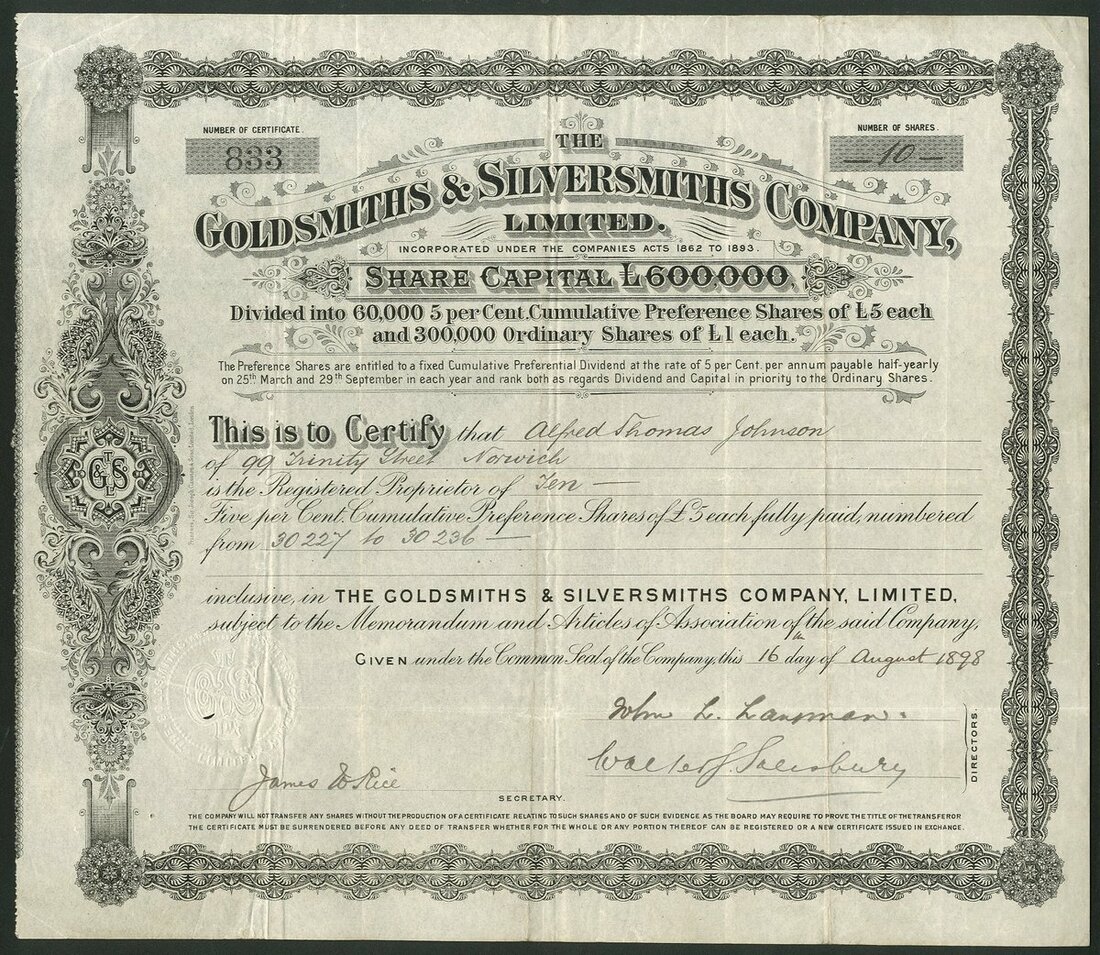 NUMBER OF CERTIFICATE.
833
NUMBER OF SHARES.
— 10 —
THE
GOLDSMITHS & SILVERSMITHS COMPANY,
LIMITED.
INCORPORATED UNDER THE COMPANIES ACTS 1862 TO 1893.
SHARE CAPITAL £600,000.
Divided into 60,000 5 per Cent. Cumulative Preference Shares of £5 each
and 300,000 Ordinary Shares of £1 each.
The Preference Shares are entitled to a fixed Cumulative Preferential Dividend at the rate of 5 per Cent. per annum payable half-yearly
on 25th March and 29th September in each year and rank both as regards Dividend and Capital in priority to the Ordinary Shares.
This is to Certify that Alfred Thomas Johnson
of 99 Trinity Street Norwich
is the Registered Proprietor of Ten —
Five per Cent. Cumulative Preference Shares of £5 each, fully paid, numbered
from 30227 to 30236 —
inclusive, in THE GOLDSMITHS & SILVERSMITHS COMPANY, LIMITED,
subject to the Memorandum and Articles of Association of the said Company,
GIVEN under the Common Seal of the Company, this 16th day of August 1898
John L. Langman.
Walter J. Salisbury
DIRECTORS.
James W Rice
SECRETARY.
THE COMPANY WILL NOT TRANSFER ANY SHARES WITHOUT THE PRODUCTION OF A CERTIFICATE RELATING TO SUCH SHARES AND OF SUCH EVIDENCE AS THE BOARD MAY REQUIRE TO PROVE THE TITLE OF THE TRANSFEROR
THE CERTIFICATE MUST BE SURRENDERED BEFORE ANY DEED OF TRANSFER WHETHER FOR THE WHOLE OR ANY PORTION THEREOF CAN BE REGISTERED OR A NEW CERTIFICATE ISSUED IN EXCHANGE.
T
G&S
L